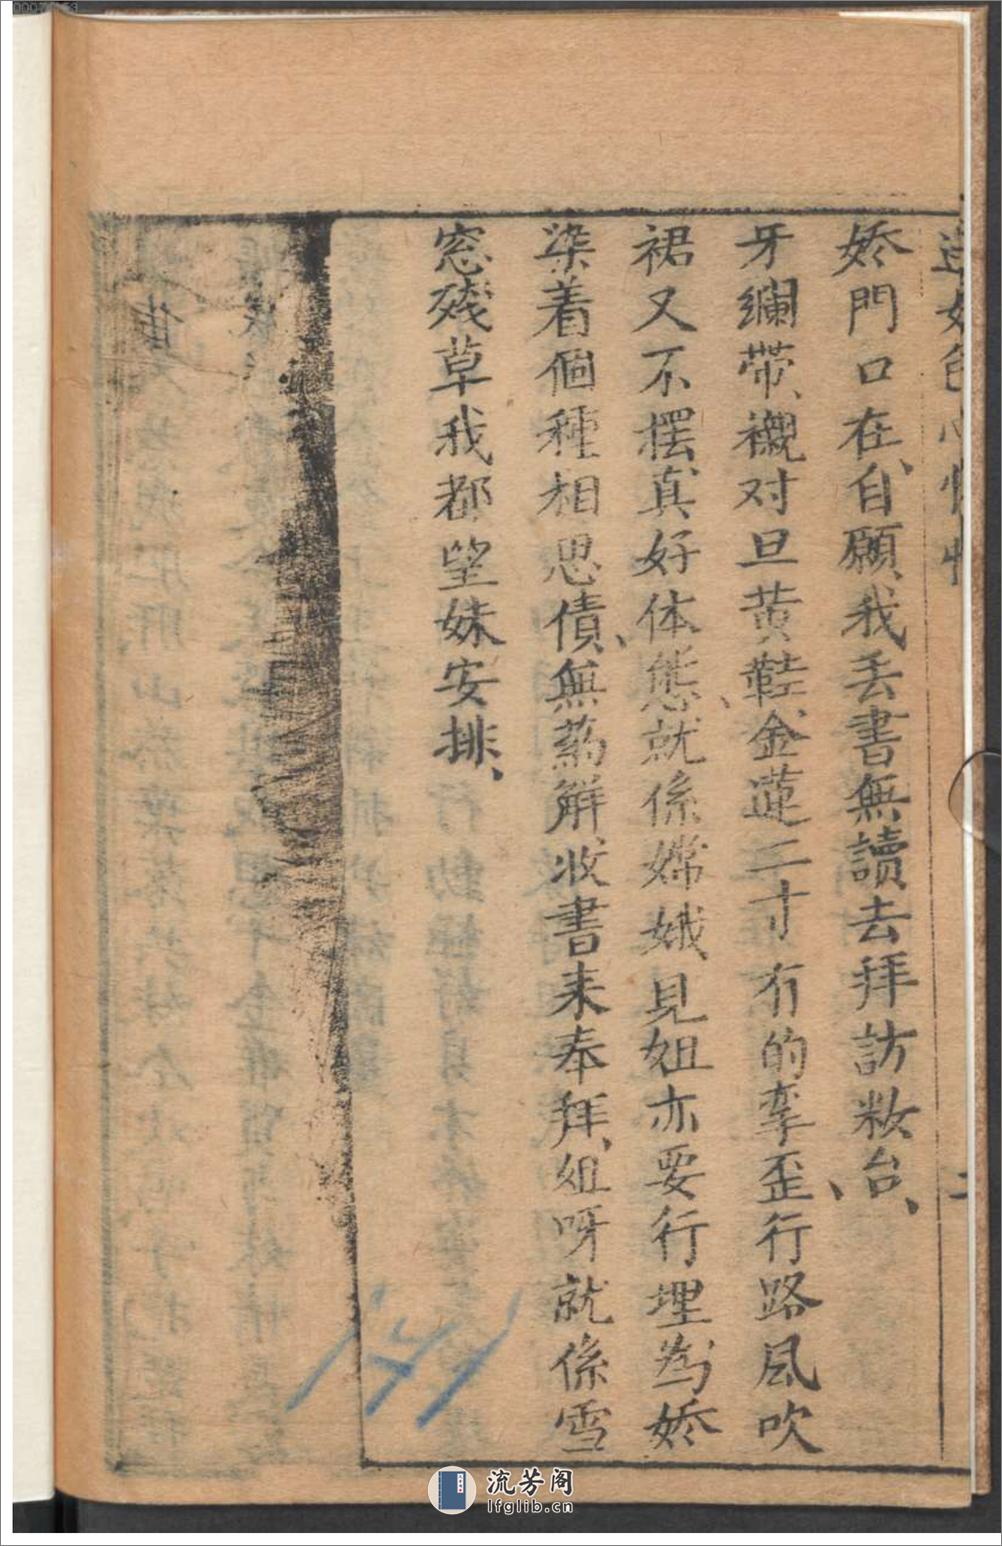 嬌門口在、自願、我丢書無讀去拜訪妝台、
牙繝带、襯对旦黄鞋、金蓮二寸有的孿歪、行路風吹
裙又不摆、真好体態、就係嫦娥見妲亦要行埋、為嬌
染着個種相思債、無葯觧、收書来奉拜、妲呀就係雪
窓殘草我都望妹安排、
141
流芳阁
lfglib.cn